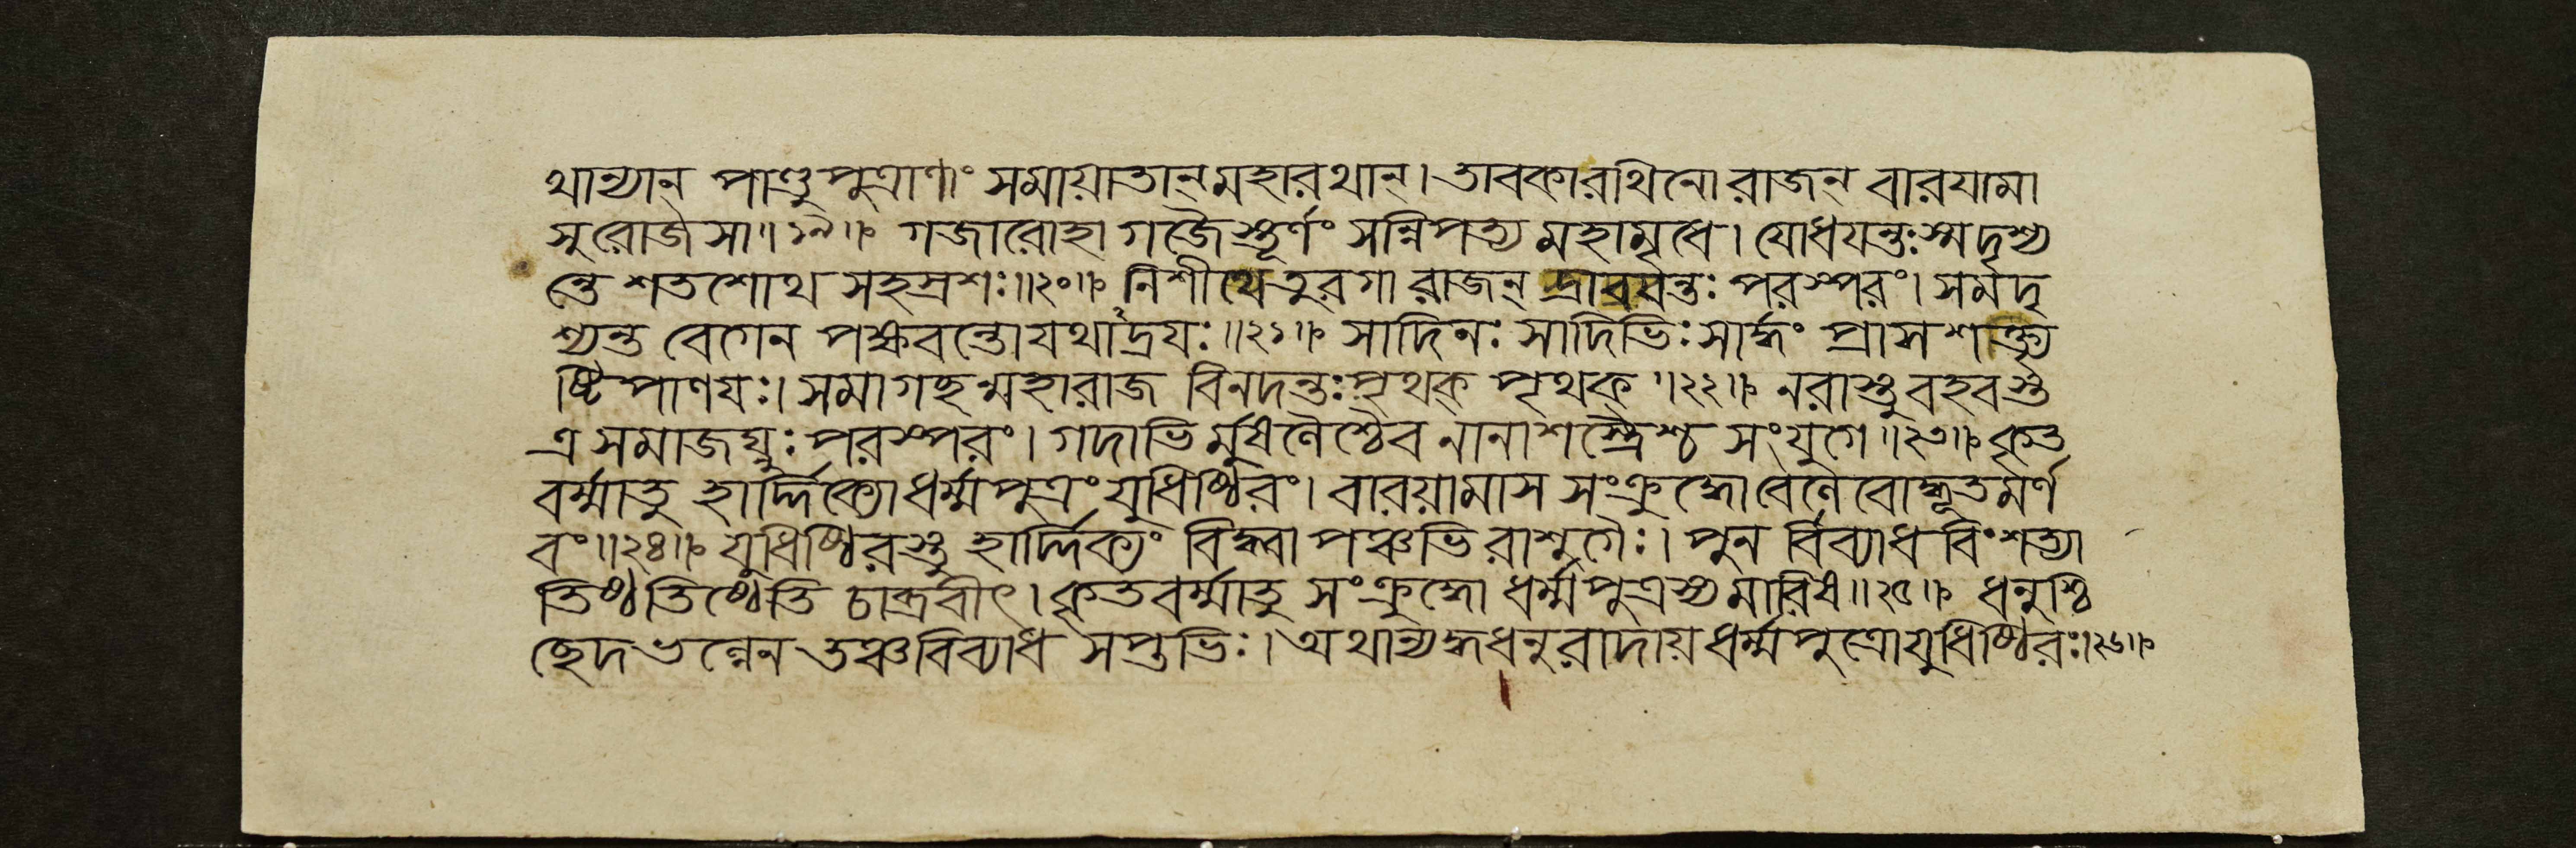 থান্যান্ পাণ্ডুপুত্রাণাং সমায়াতান্মহারথান্। তাবকারথিনো রাজন্ বারযামা
সুরোজসা॥১৯॥ গজারোহা গজৈস্তূর্ণং সন্নিপত্য মহামৃধে। যোধযন্তঃস্মদৃশ্য
ন্তে শতশোথ সহস্রশঃ॥২০॥ নিশীথে তুরগা রাজন্ দ্রাবযন্তঃ পরস্পরং। সমদৃ
শ্যন্ত বেগেন পক্ষবন্তোযথাদ্রযঃ॥২১॥ সাদিনঃ সাদিভিঃ সার্দ্ধং প্রাসশক্ত্যৃ
ষ্টিপাণযঃ। সমাগছন্মহারাজ বিনদন্তঃ পৃথক্ পৃথক্॥২২॥ নরাস্তুবহবস্ত
ত্র সমাজঘ্নুঃ পরস্পরং। গদাভির্মুষলৈশ্চৈব নানাশস্ত্রৈশ্চ সংযুগে॥২৩॥ কৃত
বর্ম্মাতু হার্দ্দিক্যোধর্ম্মপুত্রং যুধিষ্ঠিরং। বারয়ামাস সংক্রুদ্ধোবেলেবোদ্ধূতমর্ণ
বং॥২৪॥ যুধিষ্ঠিরস্তু হার্দ্দিক্যং বিদ্ধ্বা পঞ্চভিরাশুগৈঃ। পুনর্বিব্যাধ বিংশত্যা
তিষ্ঠতিষ্ঠেতি চাব্রবীৎ। কৃতবর্ম্মাতু সংক্রুদ্ধো ধর্ম্মপুত্রস্যমারিষ॥২৫॥ ধনুশ্চি
ছেদভল্লেন তঞ্চবিব্যাধ সপ্তভিঃ। অথান্যদ্ধধনুরাদায় ধর্ম্মপুত্রোযুধিষ্ঠিরঃ।২৬॥